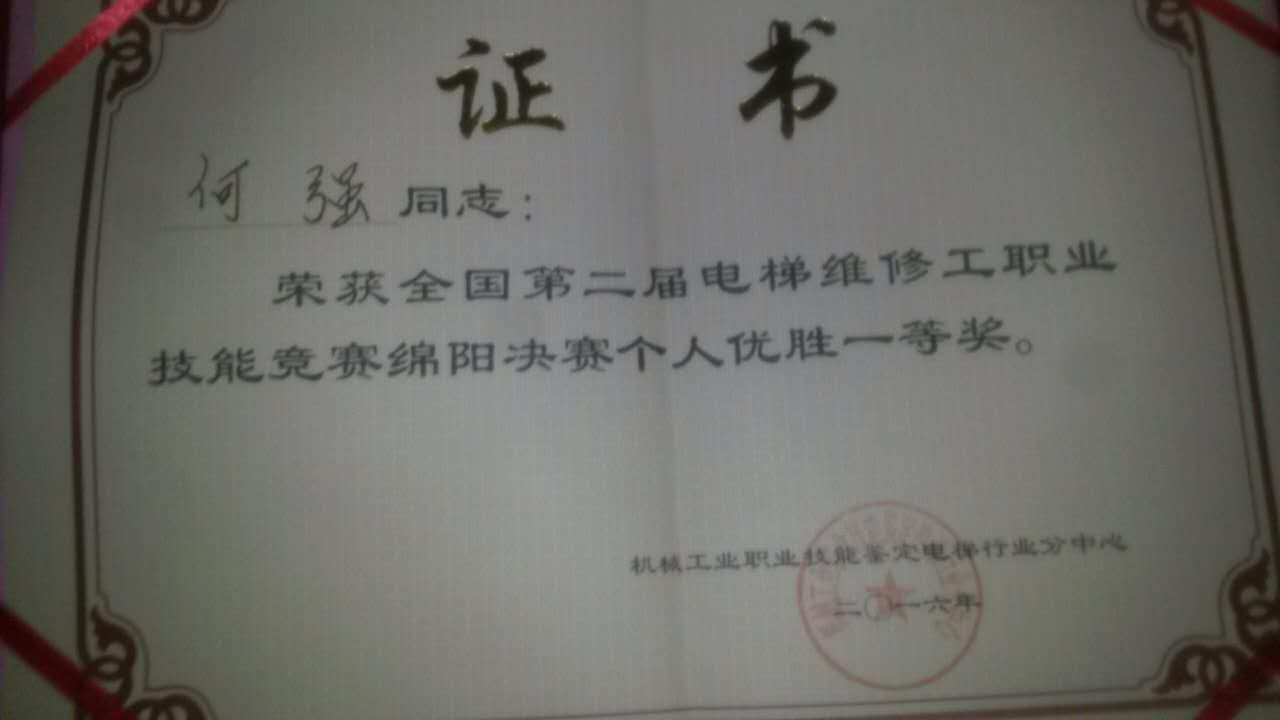 证书
何强同志：
荣获全国第二届电梯维修工职业
技能竞赛绵阳决赛个人优胜一等奖。
机械工业职业技能鉴定电梯行业分中心
二〇一六年